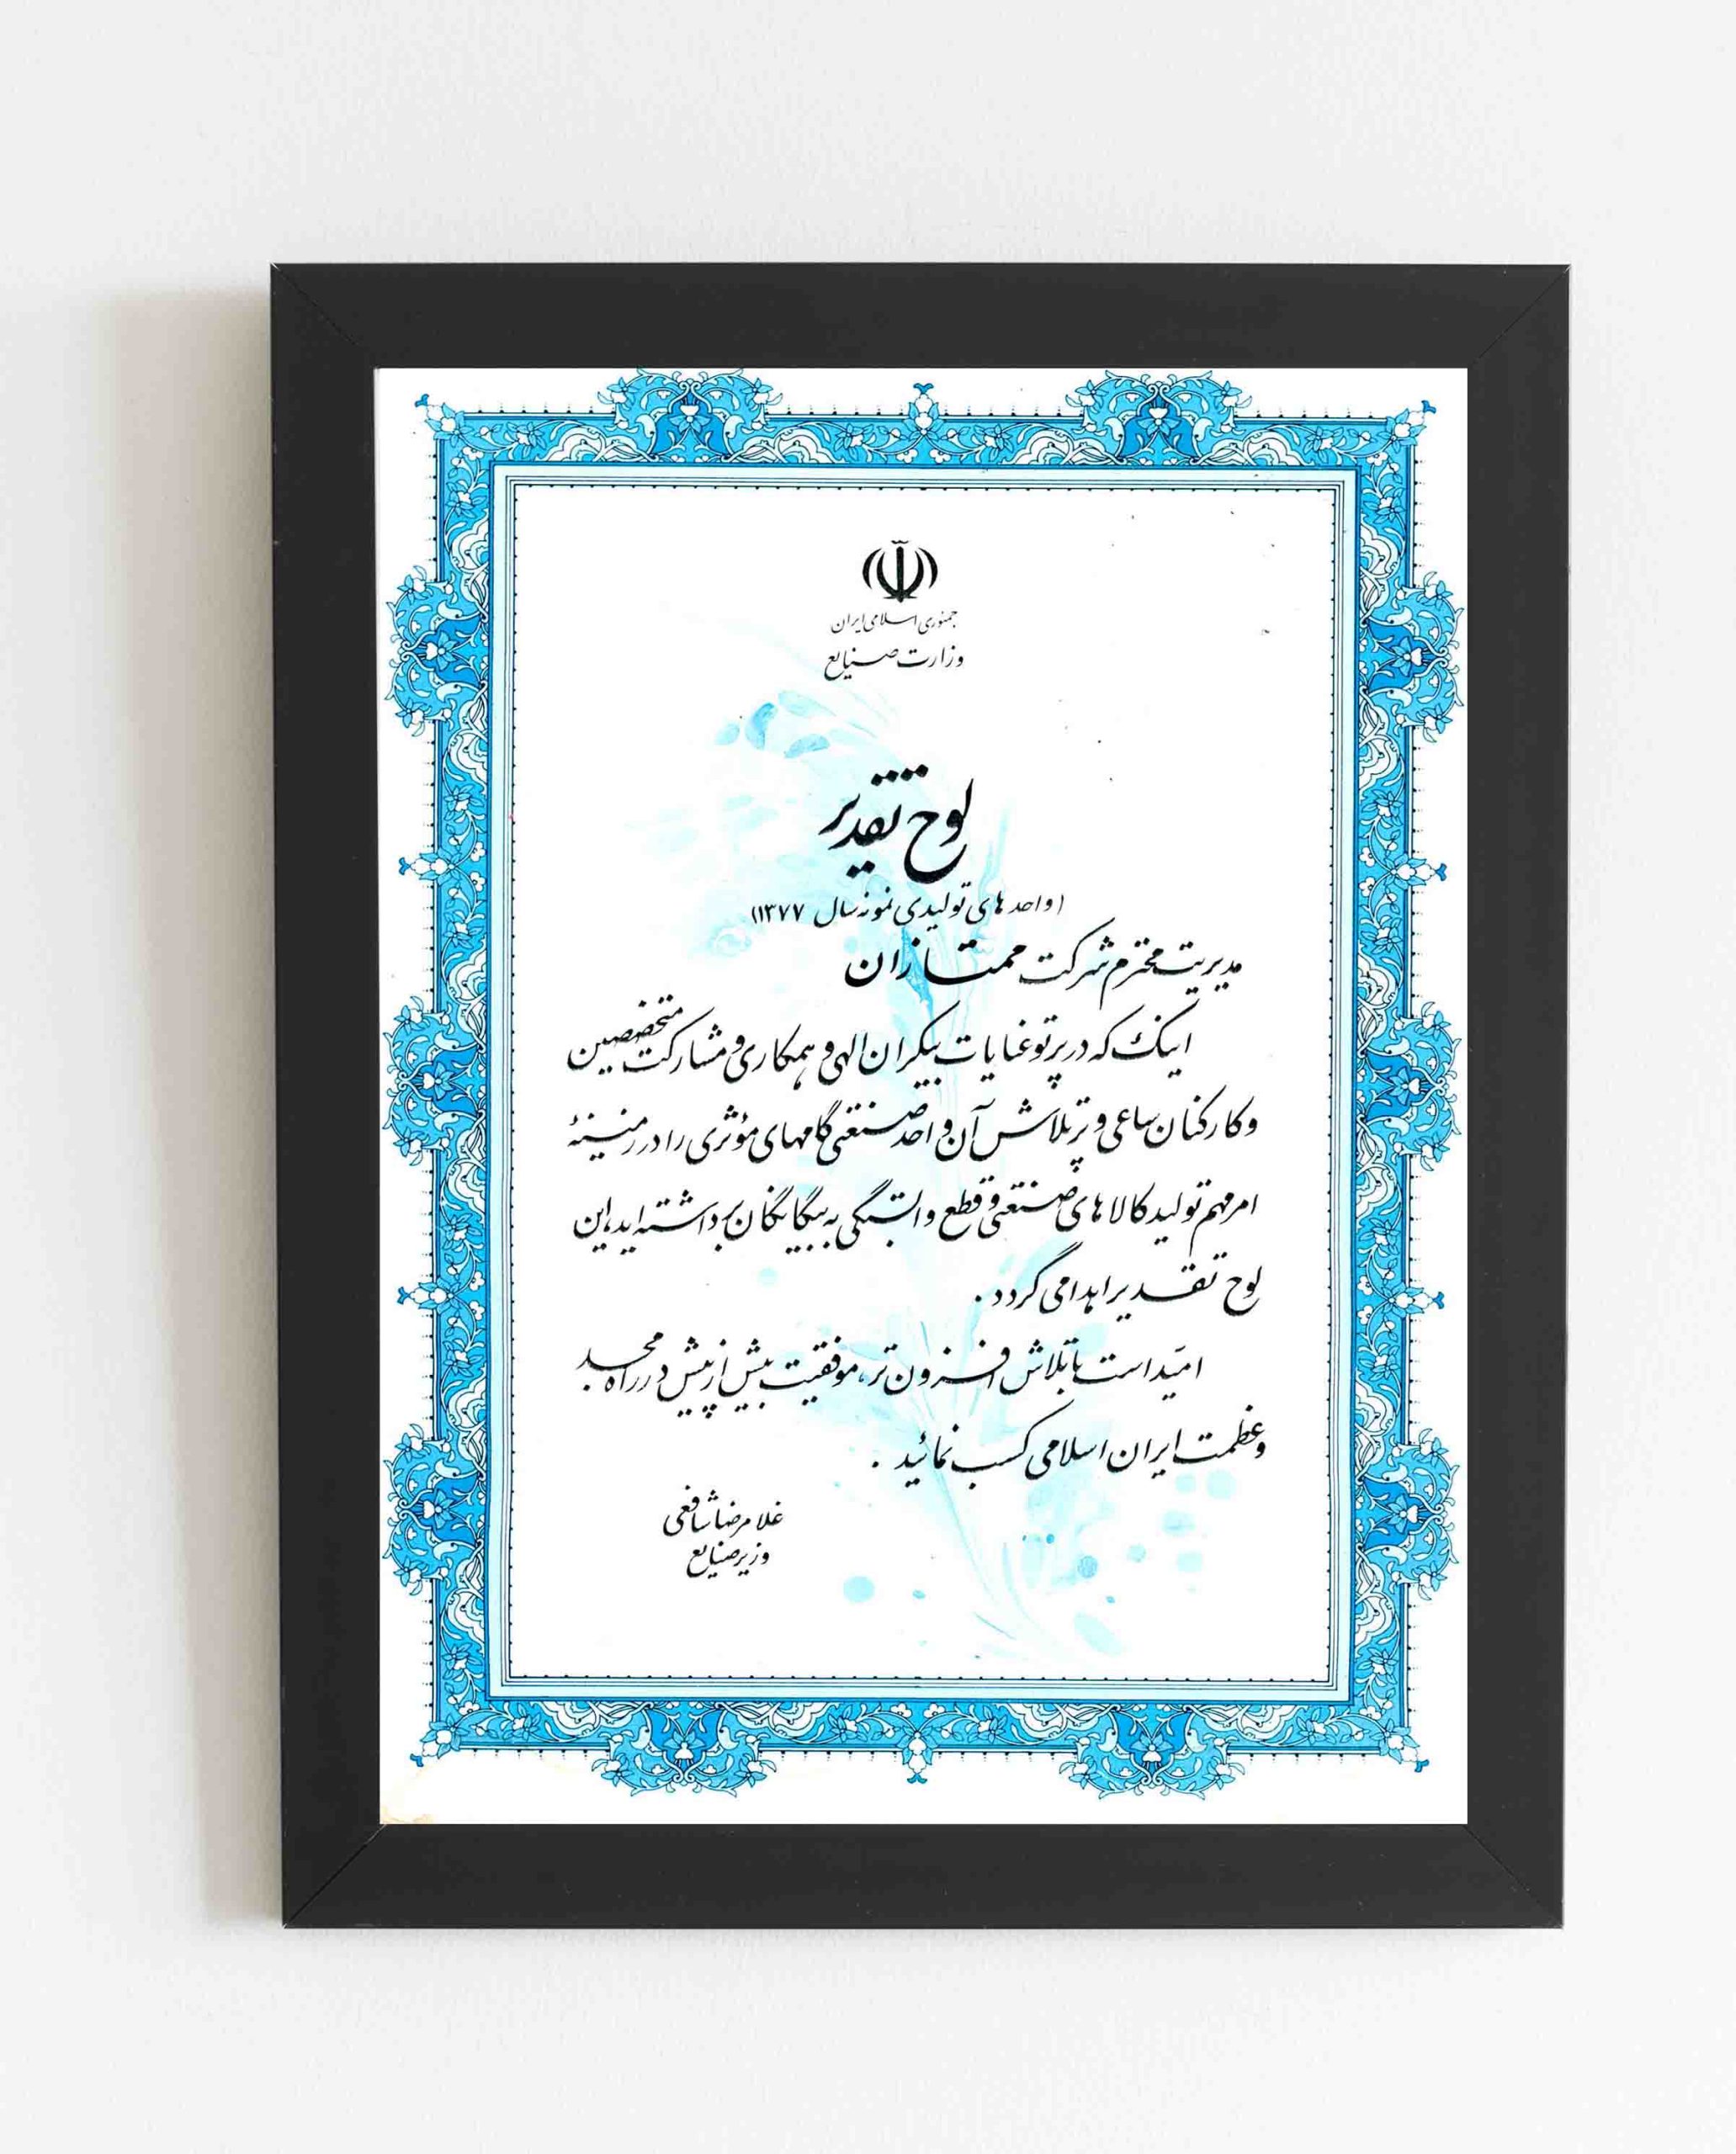 جمهوری اسلامی ایران
وزارت صنایع
لوح تقدیر
(واحدهای تولیدی نمونه سال ۱۳۷۷)
مدیریت محترم شرکت ممتازان
اینک که در پرتو عنایات بیکران الهی و همکاری و مشارکت متخصصین
و کارکنان ساعی و پرتلاش آن واحد صنعتی گامهای مؤثری را در زمینهٔ
امر مهم تولید کالاهای صنعتی و قطع وابستگی به بیگانگان برداشته‌اید، این
لوح تقدیر اهدا می گردد.
امید است با تلاش افزون تر، موفقیت بیش از پیش در راه مجد
و عظمت ایران اسلامی کسب نمائید.
غلامرضا شافعی
وزیر صنایع